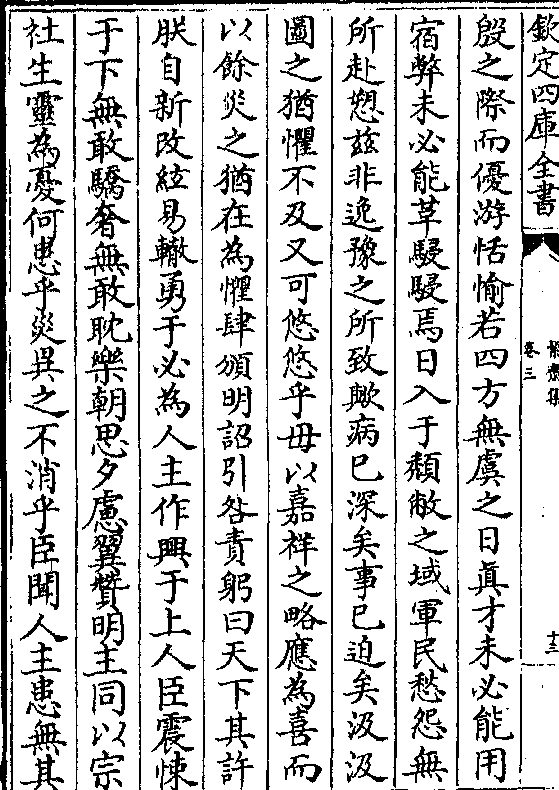 欽定四庫全書
卷三
十三
殷之際而優游恬愉若四方無虞之日真才未必能用
宿弊未必能革駸駸焉日入于頽敝之域軍民愁怨無
所赴愬兹非逸豫之所致歟病已深矣事已迫矣汲汲
圖之猶懼不及又可悠悠乎毋以嘉祥之略應為喜而
以餘災之猶在為懼肆頒明詔引咎責躬曰天下其許
朕自新改絃易轍勇于必為人主作興于上人臣震悚
于下無敢驕奢無敢耽樂朝思夕慮翼贊明主同以宗
社生靈為憂何患乎災異之不消乎臣聞人主患無其